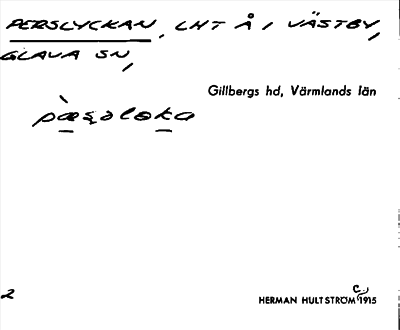 PERSLYCKAN, LHT Å I VÄSTBY,
GLAVA SN,
Gillbergs hd, Värmlands län
pæ̀ʂəlɵka
2
HERMAN HULTSTRÖM C. 1915